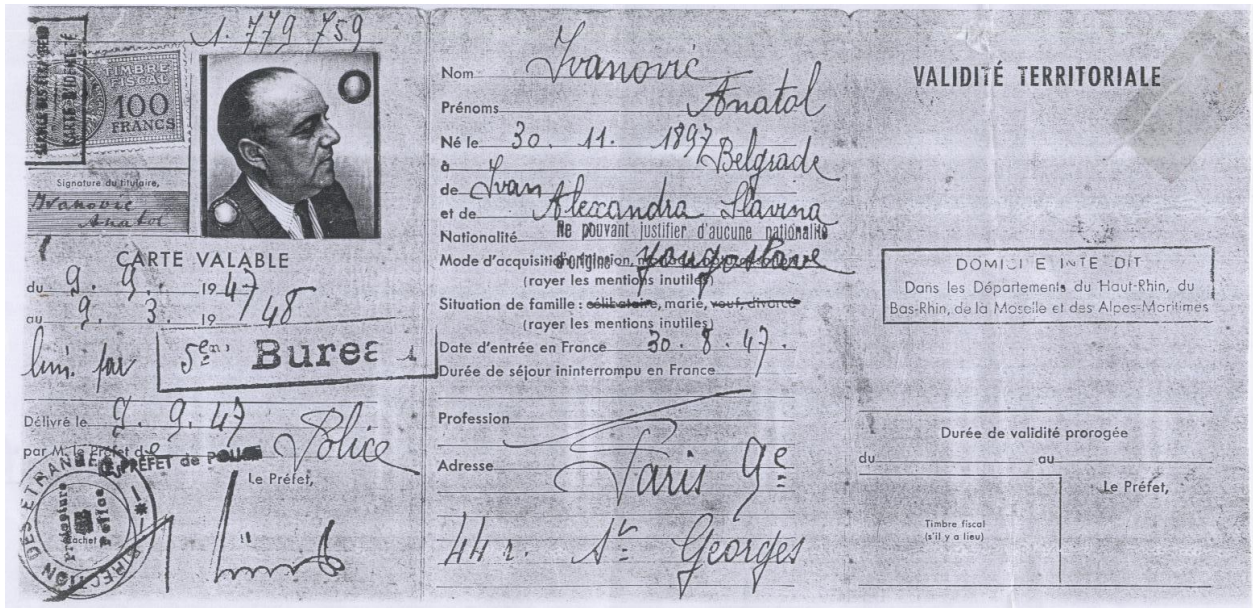 1.779 759
TIMBRE
FISCAL
100
FRANCS
Signature du titulaire,
Ivanović
Anatol
CARTE VALABLE
du 9. 9. 1947
au 9. 3. 19 48
lim. par 5e Bureau
Délivré le 9. 9. 47
par M. le Préfet de PREFET de POLICE Police
Le Préfet,
DIRECTION DES ETRANGERS
Préfecture
Police
Cachet
Nom Ivanović
Prénoms Anatol
Né le 30. 11. 1897
à Belgrade
de Ivan
et de Alexandra Slavina
Nationalité Ne pouvant justifier d'aucune nationalité
d'origine yougoslave
Mode d'acquisition : filiation,
(rayer les mentions inutiles)
Situation de famille : célibataire, marié, veuf, divorcé
(rayer les mentions inutiles)
Date d'entrée en France 30. 8. 47.
Durée de séjour ininterrompu en France
Profession
Adresse Paris 9e
44 r. St Georges
VALIDITÉ TERRITORIALE
DOMICILE INTERDIT
Dans les Départements du Haut-Rhin, du
Bas-Rhin, de la Moselle et des Alpes-Maritimes
Durée de validité prorogée
du au
Le Préfet,
Timbre fiscal
(s'il y a lieu)